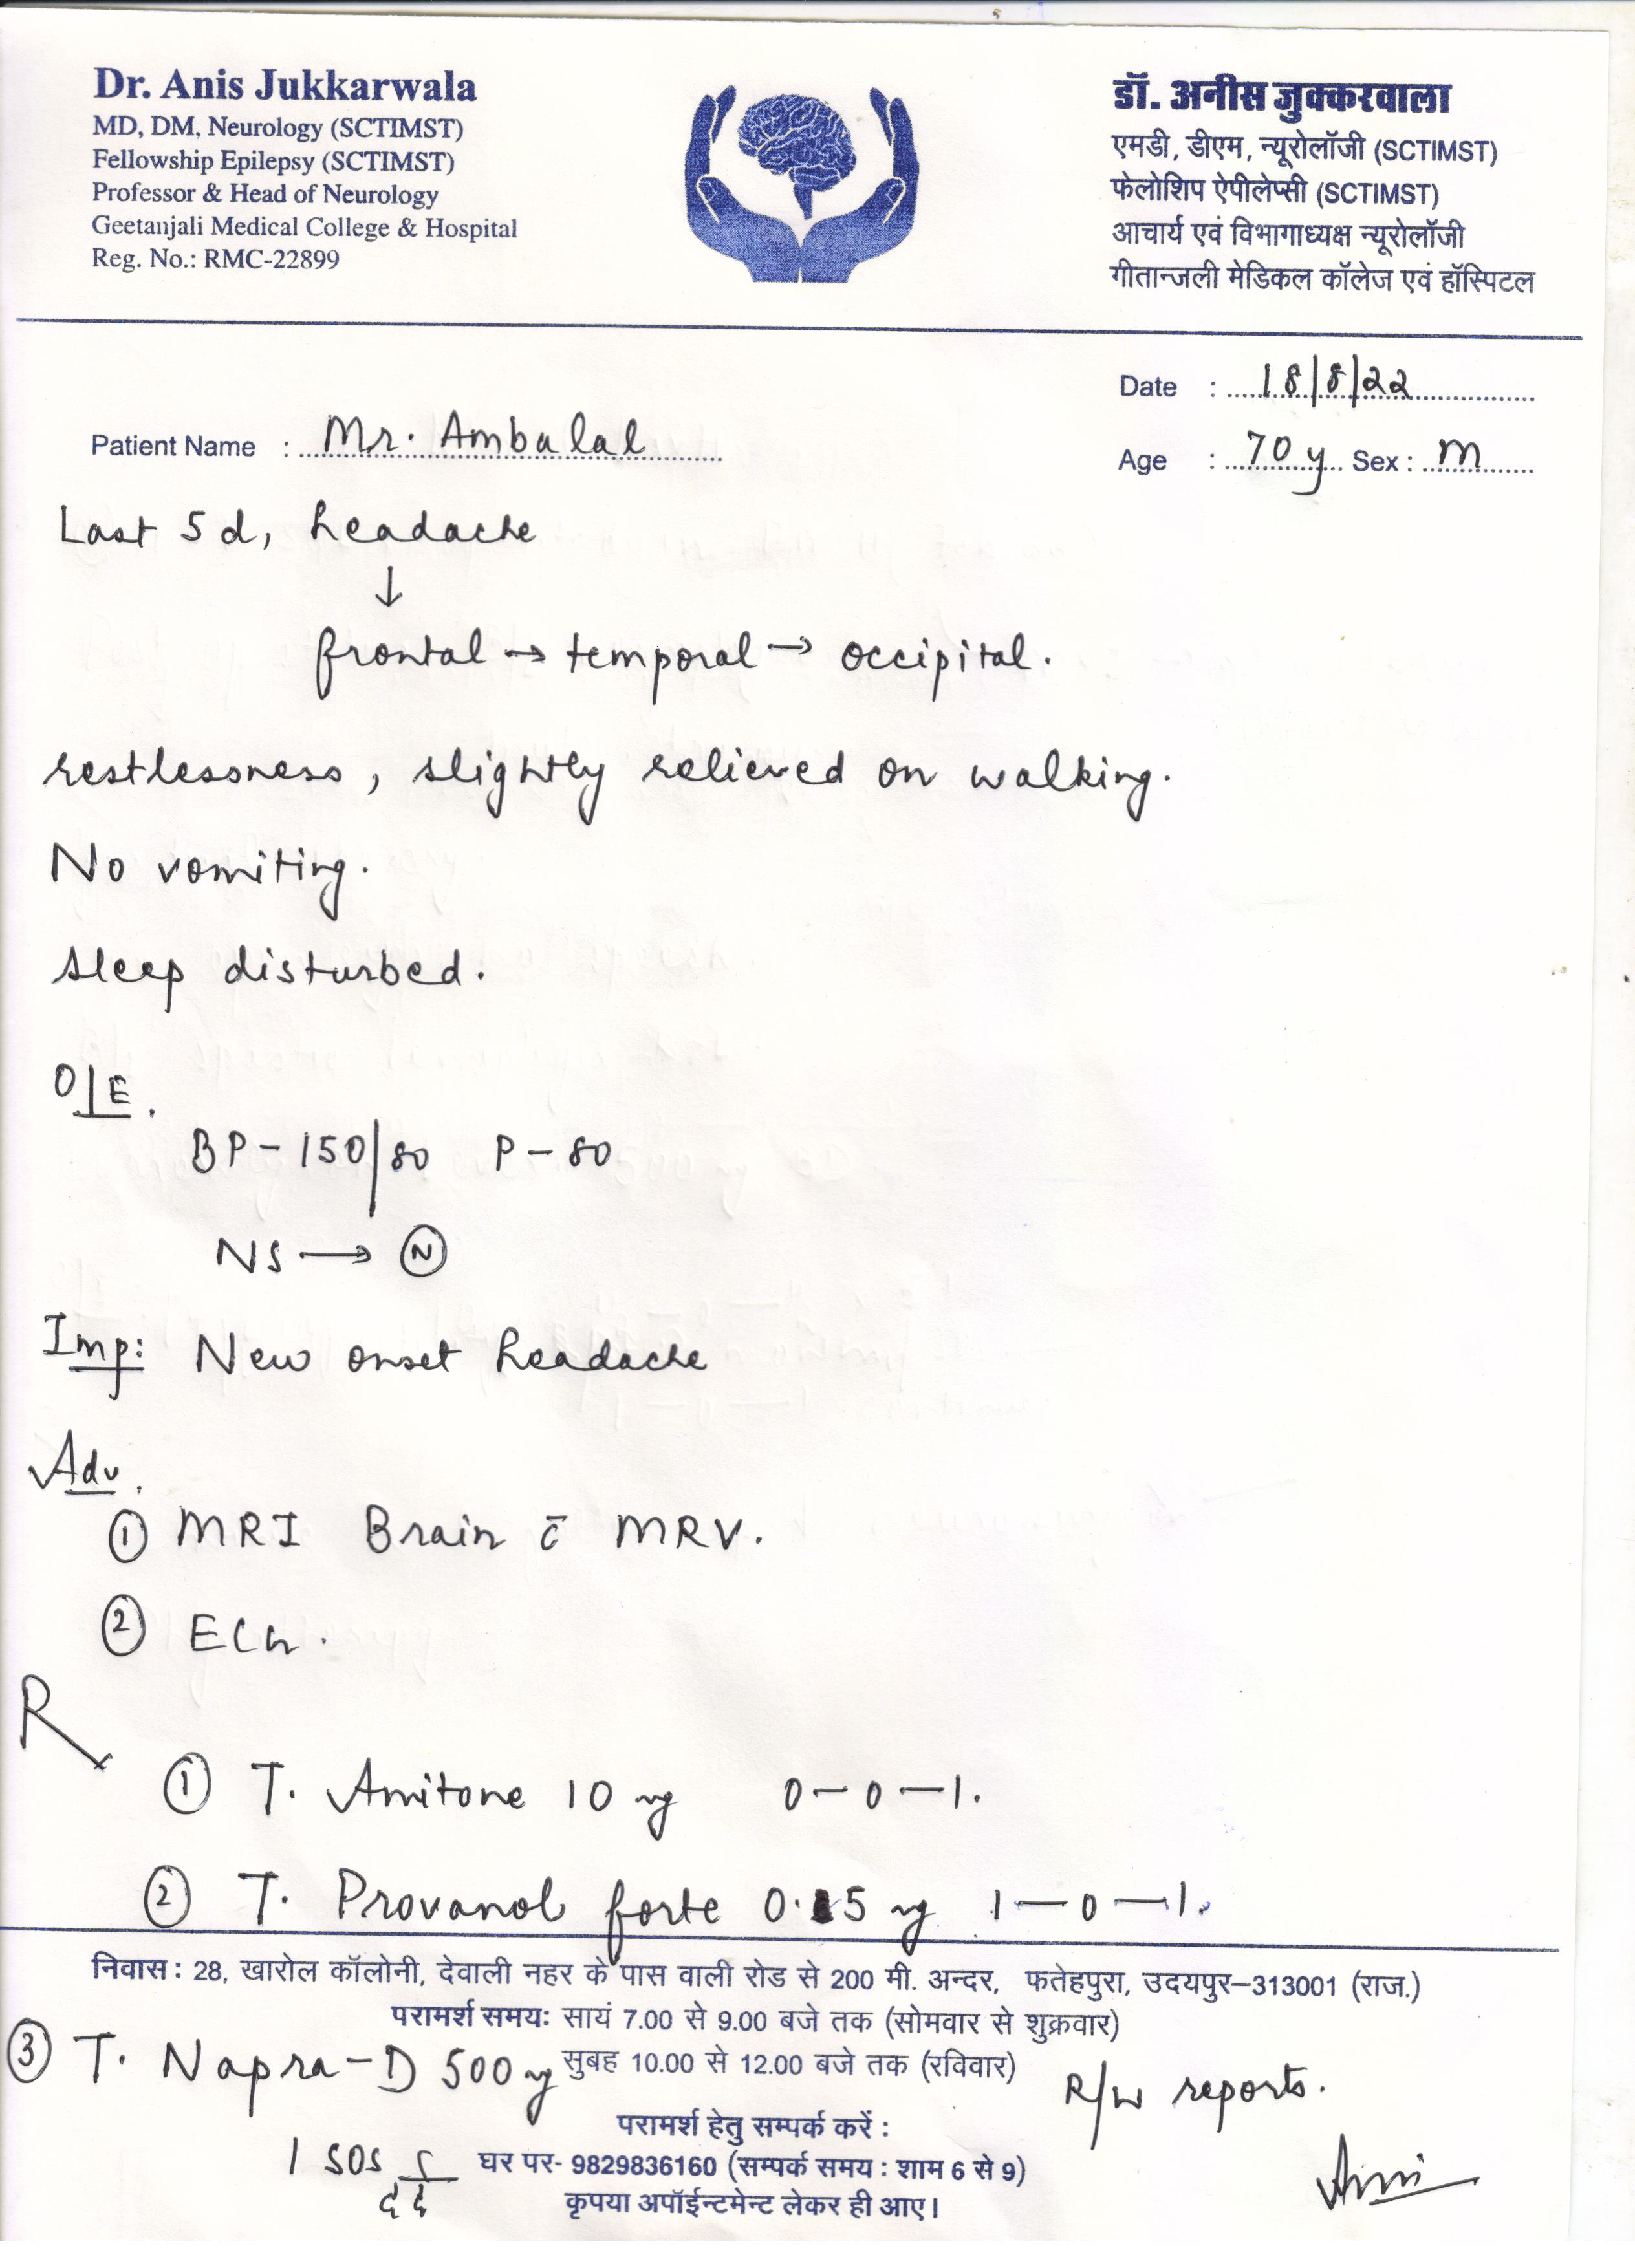 Dr. Anis Jukkarwala
MD, DM, Neurology (SCTIMST)
Fellowship Epilepsy (SCTIMST)
Professor & Head of Neurology
Geetanjali Medical College & Hospital
Reg. No.: RMC-22899
डॉ. अनीस जुक्करवाला
एमडी, डीएम, न्यूरोलॉजी (SCTIMST)
फेलोशिप ऐपीलेप्सी (SCTIMST)
आचार्य एवं विभागाध्यक्ष न्यूरोलॉजी
गीतान्जली मेडिकल कॉलेज एवं हॉस्पिटल
Date : 18/8/22
Patient Name : Mr. Ambalal
Age : 70 y Sex : M
Last 5 d, headache
↓
frontal → temporal → occipital.
restlessness, slightly relieved on walking.
No vomiting.
Sleep disturbed.
O/E.
BP - 150/80 P - 80
NS → N
Imp: New onset headache
Adv.
① MRI Brain c̄ MRV.
② ECG.
R
① T. Amitone 10 mg 0-0-1.
② T. Provanol forte mg 1-0-1.
निवास : 28, खारोल कॉलोनी, देवाली नहर के पास वाली रोड से 200 मी. अन्दर, फतेहपुरा, उदयपुर-313001 (राज.)
परामर्श समयः सायं 7.00 से 9.00 बजे तक (सोमवार से शुक्रवार)
सुबह 10.00 से 12.00 बजे तक (रविवार)
③ T. Napra-D 500 mg
1 SOS दर्द
R/w reports.
परामर्श हेतु सम्पर्क करें :
घर पर- 9829836160 (सम्पर्क समय : शाम 6 से 9)
कृपया अपॉईन्टमेन्ट लेकर ही आए।